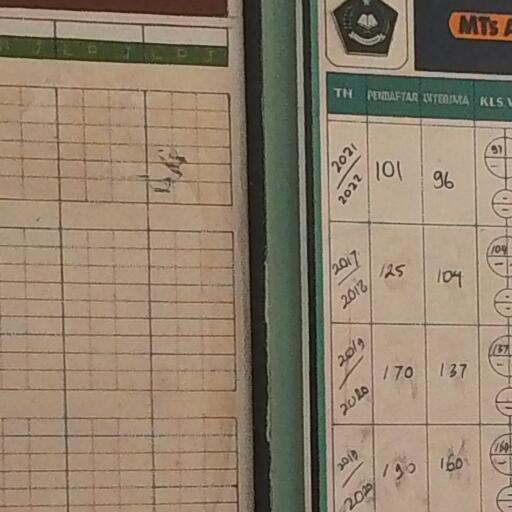 L P J L P J
MTs A
TH PENDAFTAR DITERIMA KLS V
2021/2022 101 96 97
2017/2018 125 104 104
2019/2020 170 137 137
2019/2020 190 160 160